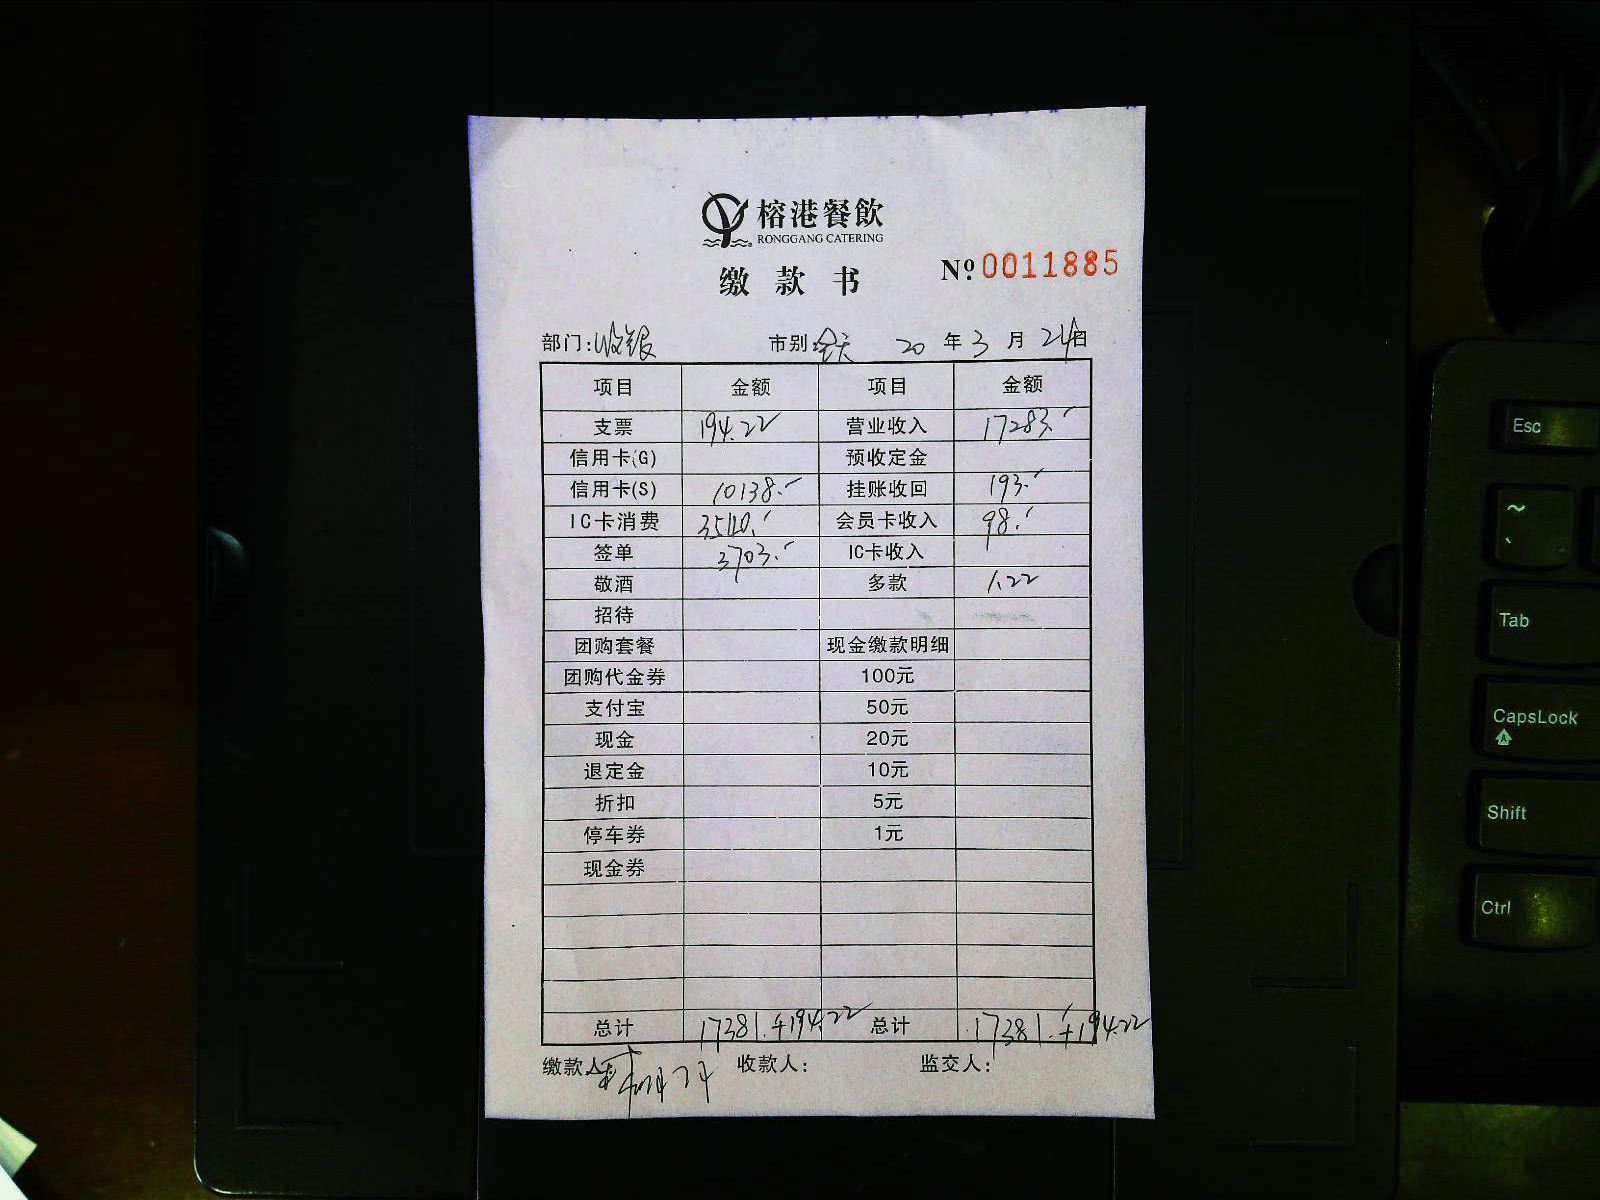 榕港餐飲
RONGGANG CATERING
缴款书 No 0011885
部门:收银 市别:全天 20 年 3 月 24 日
项目 金额 项目 金额
支票 194.22 营业收入 17283.
信用卡(G) 预收定金
信用卡(S) 10138. 挂账收回 193.
IC卡消费 3540. 会员卡收入 98.
签单 3703. IC卡收入
敬酒 多款 1.22
招待
团购套餐 现金缴款明细
团购代金券 100元
支付宝 50元
现金 20元
退定金 10元
折扣 5元
停车券 1元
现金券
总计 17381.+194.22 总计 17381.+194.22
缴款人: 收款人: 监交人:
Esc
~
`
Tab
CapsLock
A
Shift
Ctrl